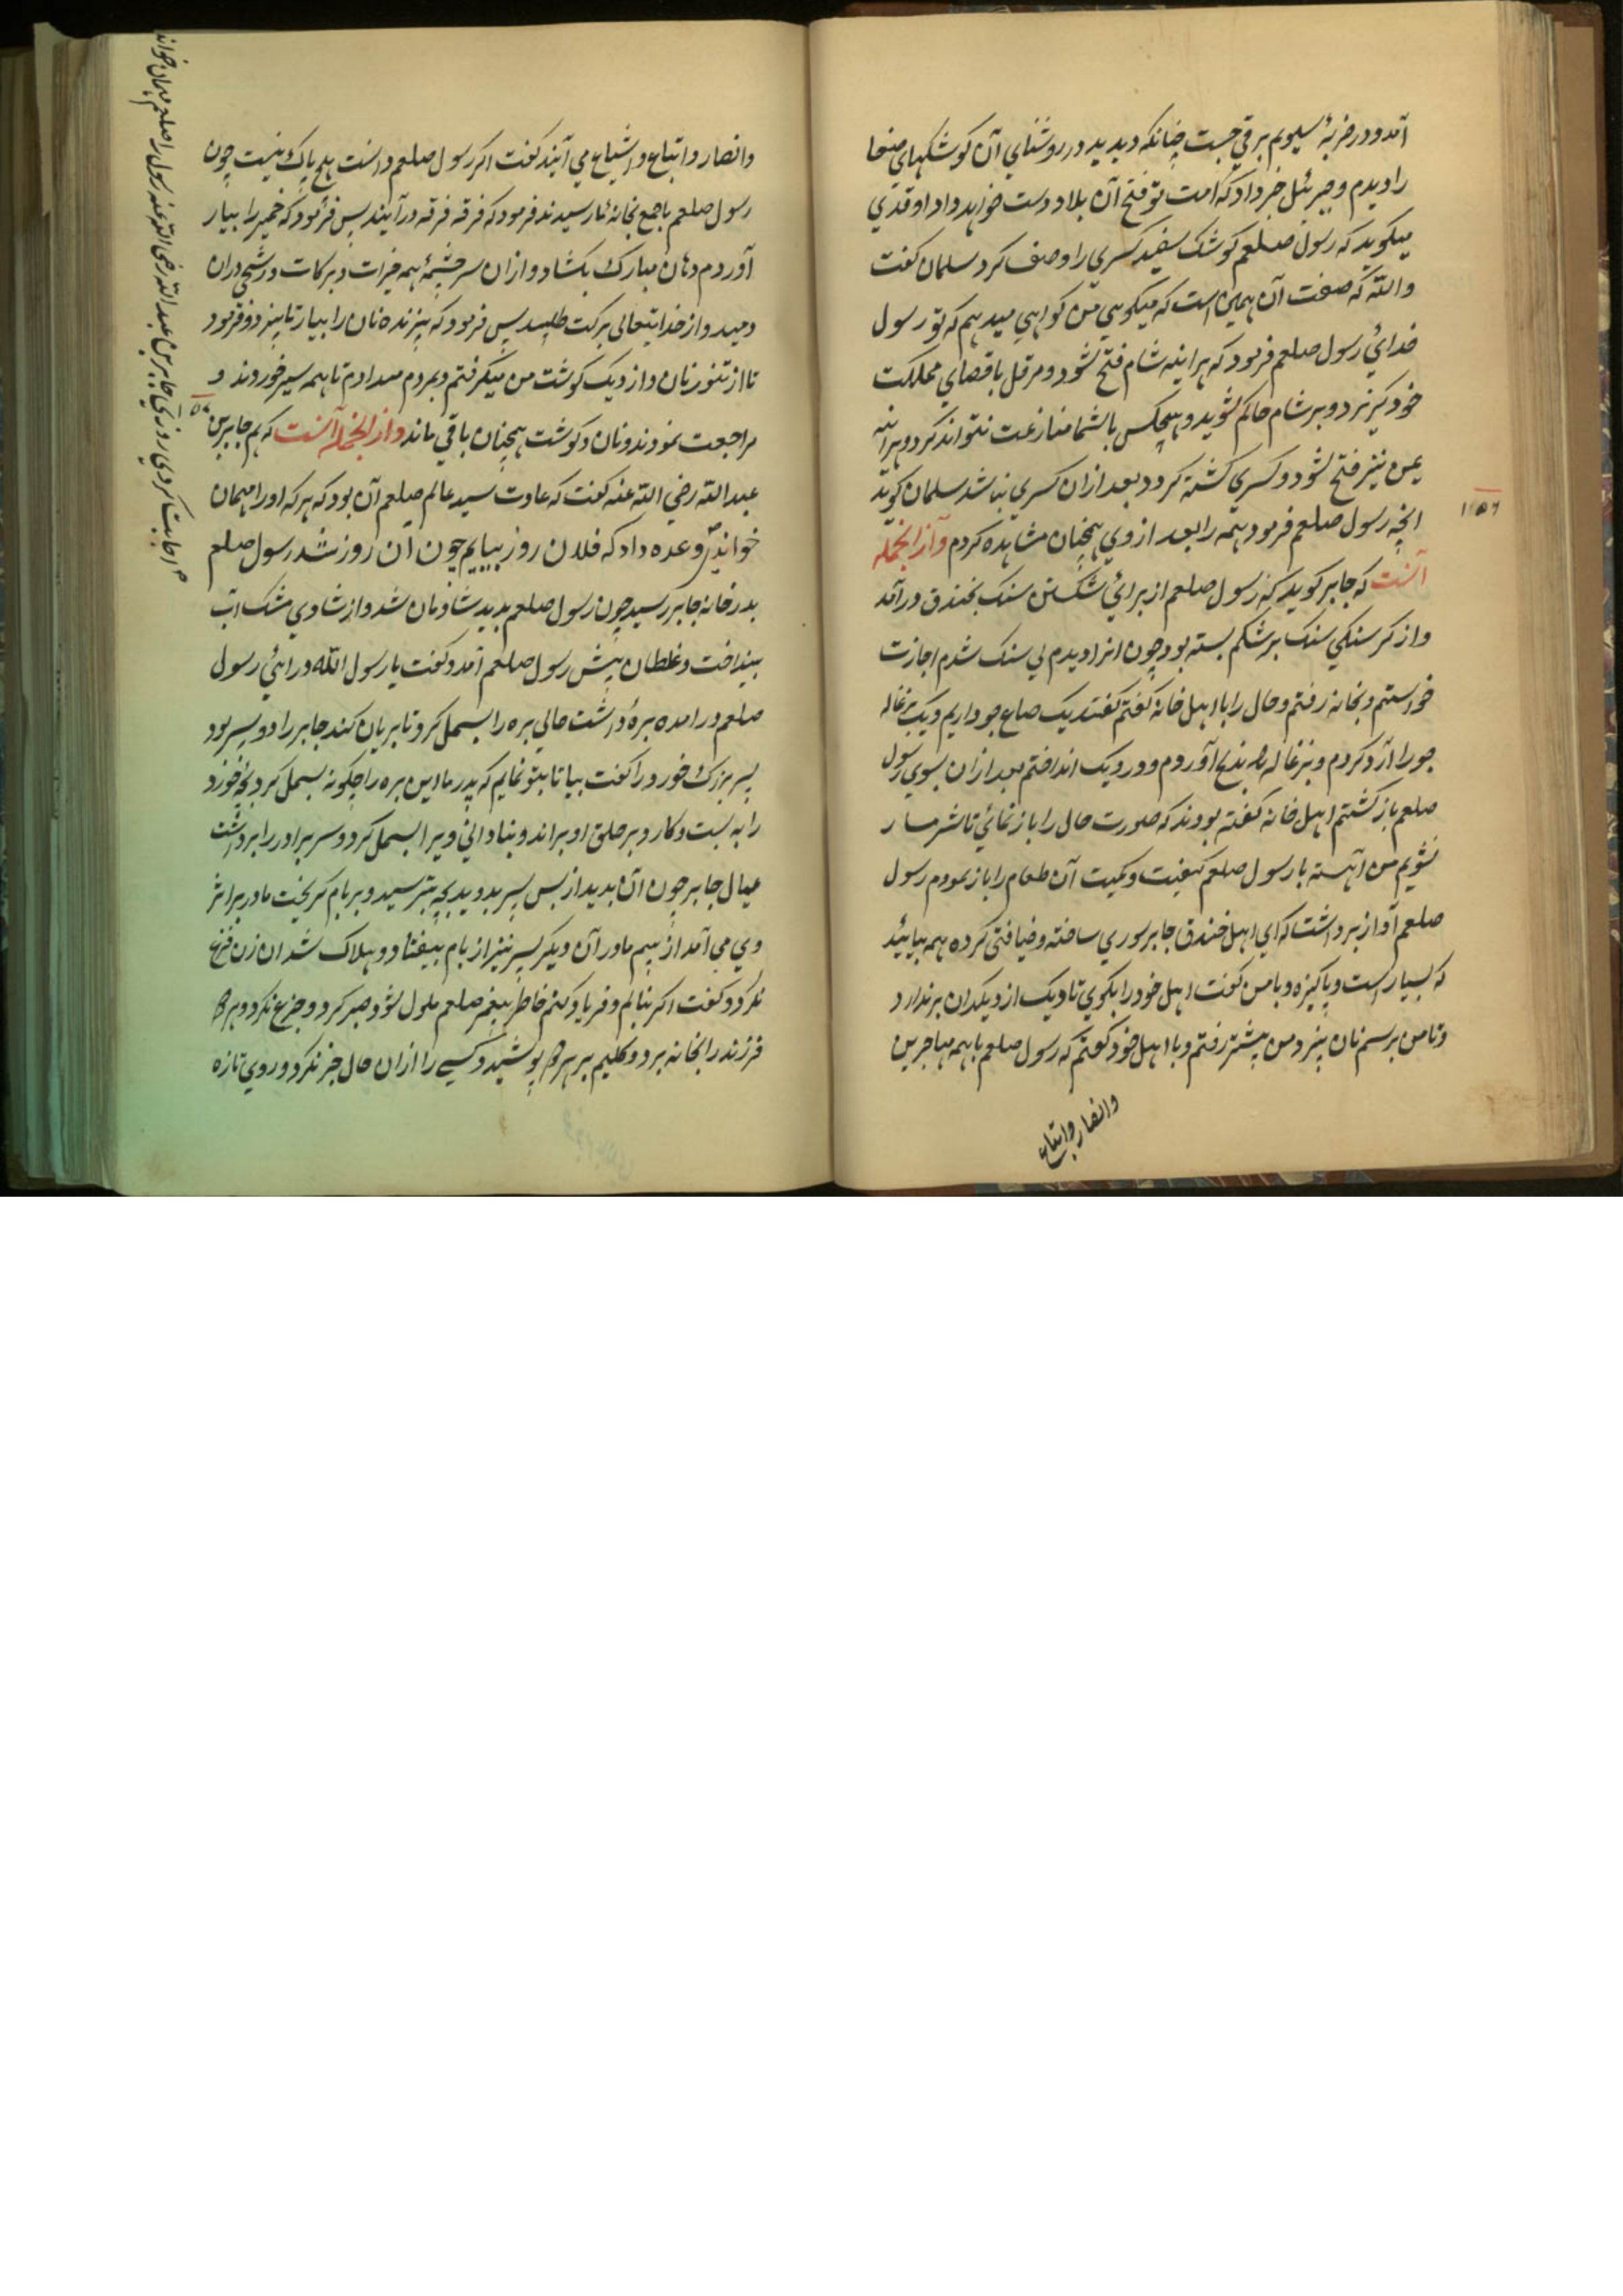 آمد و در ضربهٔ سیوم برقی جست چنانکه دیدید در روشنای آن کوشکهای صنعا
را دیدم و جبرئیل خبر داد که امت تو فتح آن بلاد دست خواهد داد واقدی
میکوید که رسول صلعم کوشک سفید کسری را وصف کرد سلمان کفت
والله که صفت آن همین است که میکویی من کواهی میدهم که تو رسول
خدائی رسول صلعم فرمود که هراینه شام فتح شود و هرقل باقصای مملکت
خود کریزد و بر شام حاکم شوید و هیچکس باشما منازعت نتواند کرد و هراینه
یمن نیز فتح شود و کسری کشته کردد بعد ازان کسری نباشد سلمان کوید
انچه رسول صلعم فرمود همه را بعد از وی همچنان مشاهده کردم وازانجمله
۱۵۶
آنست که جابر کوید که رسول صلعم از برای شکستن سنک بخندق درآمد
و از کرسنکی سنک بر شکم بسته بود چون انرا دیدم بی سنک شدم اجازت
خواستم و بخانه رفتم و حال را با اهل خانه کفتم کفتند یک صاع جو داریم و یک بزغاله
جو را آرد کردم و بزغاله را بذبح آوردم و در دیک انداختم بعد ازان بسوی رسول
صلعم بازکشتم اهل خانه کفته بودند که صورت حال را باز نمائی تا شرمسار
نشویم من آهسته با رسول صلعم کیفیت و کمیت آن طعام را باز نمودم رسول
صلعم آواز برداشت که ای اهل خندق جابر سوری ساخته و ضیافتی کرده همه بیائید
که بسیار است و پاکیزه و با من کفت اهل خود را بکوی تا دیک از دیکدان برندارد
و تا من برسم نان نپزد من پیشتر رفتم و با اهل خود کفتم که رسول صلعم با همه مهاجرین
وانصار واتباع
وانصار و اتباع و اشیاع می آیند کفت اکر رسول صلعم دانست هیچ باک نیست چون
رسول صلعم با جمع بخانهٔ ما رسیدند فرمود که فرقه فرقه درآیند پس فرمود که خمیر را بیار
آوردم دهان مبارک بکشاد و ازان سرچشمهٔ همه خیرات و برکات رشحی دران
دمید و از خدایتعالی برکت طلبید پس فرمود که پزنده نان را بیار تا بپزد و فرمود
تا از تنور نان و از دیک کوشت من میکرفتم و بمردم میدادم تا همه سیر خوردند و
مراجعت نمودند و نان و کوشت همچنان باقی ماند وازانجمله آنست که هم جابر بن
عبدالله رضی الله عنه کفت که عادت سید عالم صلعم آن بود که هرکه او را مهمان
خواندی وعده داد که فلان روز بیایم چون ان روز شد رسول صلعم
بدر خانه جابر رسید چون رسول صلعم بدید شادمان شد و از شادی مشک آب
بینداخت و غلطان پیش رسول صلعم آمد و کفت یا رسول الله درائی رسول
صلعم درامده برهٔ داشت حالی بره را بسمل کرد تا بریان کند جابر را دو پسر بود
پسر بزرک خورد را کفت بیا تا بتو نمایم که پدر ما این بره را چکونه بسمل کرد بچه خورد
را به بست و کارد بر حلق او براند و بنادانی ویرا بسمل کرد و سر برادر را برداشت
عیال جابر چون آن بدید از پس پسر بدوید بچه بترسید و بر بام کریخت مادر بر اثر
وی می آمد از بیم مادر آن دیکر پسر نیز از بام بیفتاد و هلاک شد ان زن فزع
نکرد و کفت اکر بنالم و فریاد کنم خاطر پیغمبر صلعم ملول شود صبر کرد و جزع نکرد و هر دو
فرزند را بخانه برد و کلیم بر هر دو پوشید و کسی را ازان حال خبر نکرد و روی تازه
اجابت کردی روزی جابر بن عبدالله رضی الله عنه رسول را صلعم مهمان خواند